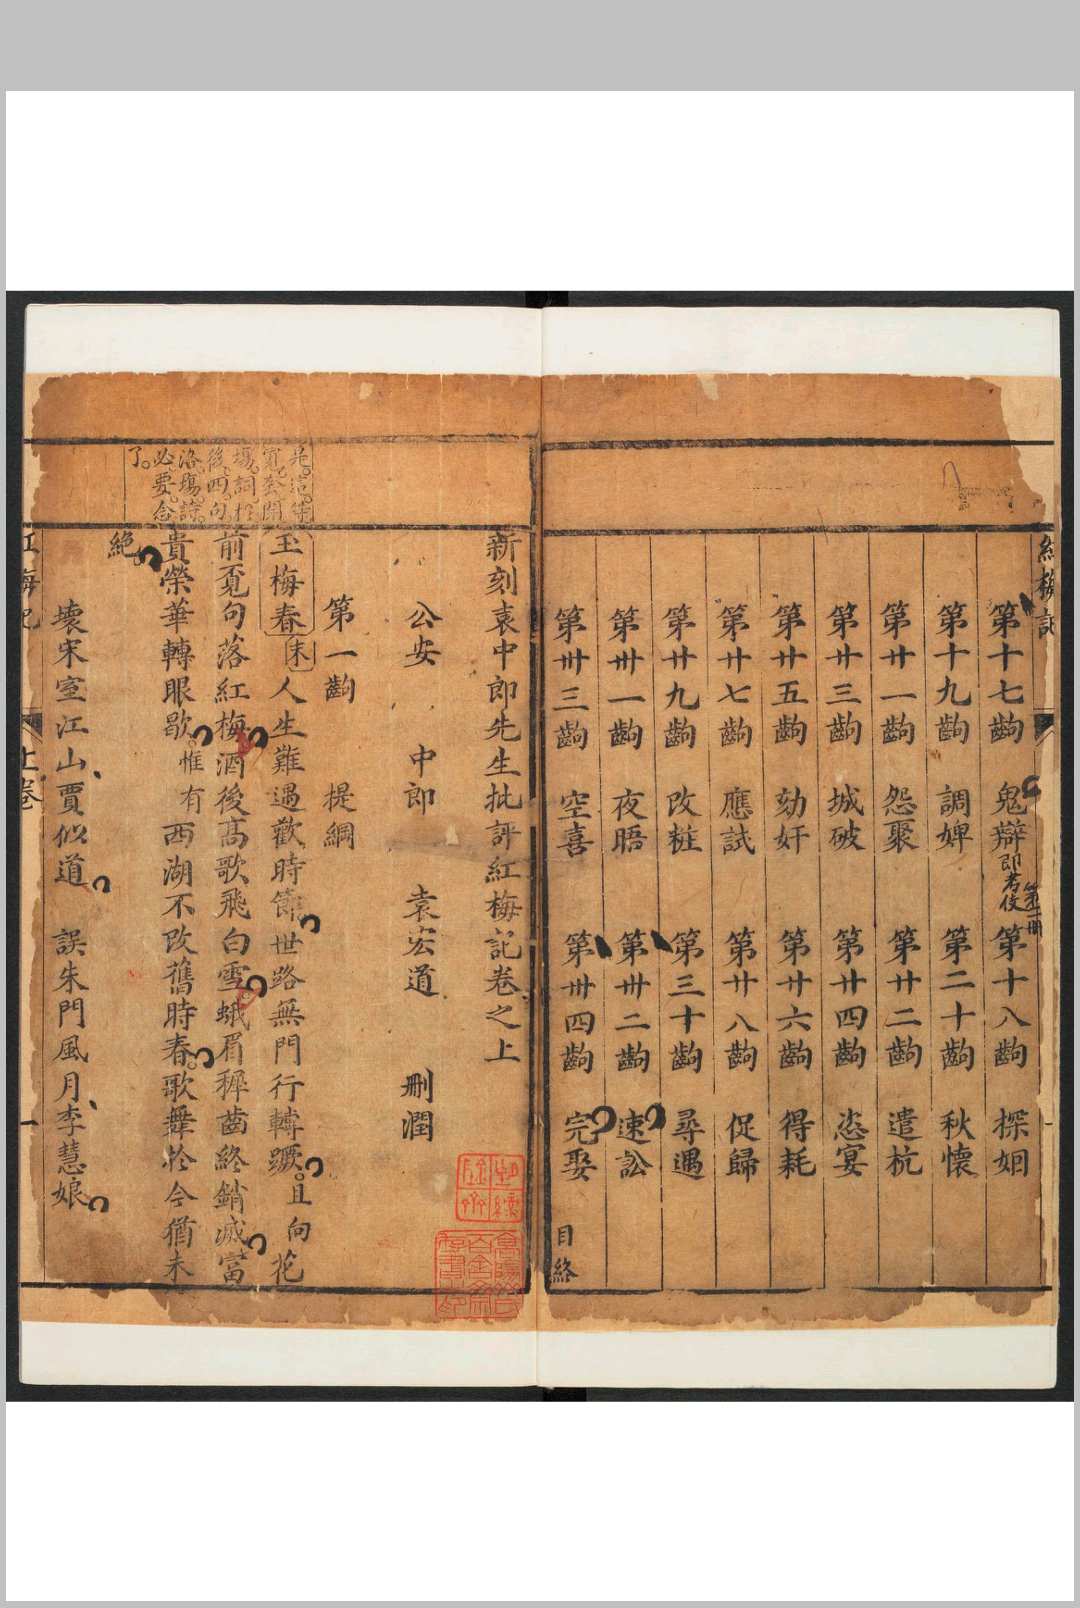 紅梅記
第十七齣 鬼辯 即考伎 第十八齣 探姻
第十九齣 調婢 第二十齣 秋懷
第廿一齣 怨聚 第廿二齣 遣杭
第廿三齣 城破 第廿四齣 恣宴
第廿五齣 劾奸 第廿六齣 得耗
第廿七齣 應試 第廿八齣 促歸
第廿九齣 改粧 第三十齣 尋遇
第卅一齣 夜晤 第卅二齣 速訟
第卅三齣 空喜 第卅四齣 完娶
目終
新刻袁中郎先生批評紅梅記卷之上
公安 中郎 袁宏道 刪潤
第一齣 提綱
玉梅春 末 人生難遇歡時節世路無門行轉蹶。且向花
前覔句落紅梅酒後高歌飛白雪蛾眉稺齒終銷滅富
貴榮華轉眼歇。惟有西湖不改舊時春。歌舞於今猶未
絶
壞宋室江山賈似道 誤朱門風月李慧娘
後四句
必要合
了。
紅梅記
上卷
一